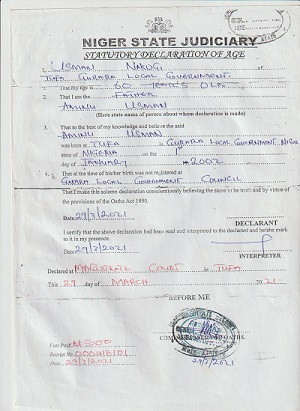 NIGER STATE JUDICIARY
STATUTORY DECLARATION OF AGE
1. I, USMAN NAKUGI of
TUFA GURARA LOCAL GOVERNMENT
That my age is 60 YEARS OLD
2. That I am the FATHER
AMINU USMAN
(Here state name of person about whom declaration is made)
3. That to the best of my knowledge and believe the said
AMINU USMAN
was born at TUFA in GURARA LOCAL GOVERNMENT NIGER
state of NIGERIA on the 1st
day of JANUARY 2002
4. That at the time of his/her birth was not registered at
GURARA LOCAL GOVERNMENT COUNCIL
That I make this solemn declaration conscientiously believing the same to be truth and by virtue of
the provisions of the Oaths Act 1990.
Date 29/3/2021
DECLARANT
I certify that the above declaration had been read and interpreted to the declarant and he/she mark
to it in my presence.
Date 29/3/2021
INTERPRETER
Declared at MAGISTRATE COURT in TUFA
This 29 day of MARCH 2021
BEFORE ME
COMMISSIONER FOR OATHS
Fees Paid
Receipt No
Date 29/3/2021
29/3/2021